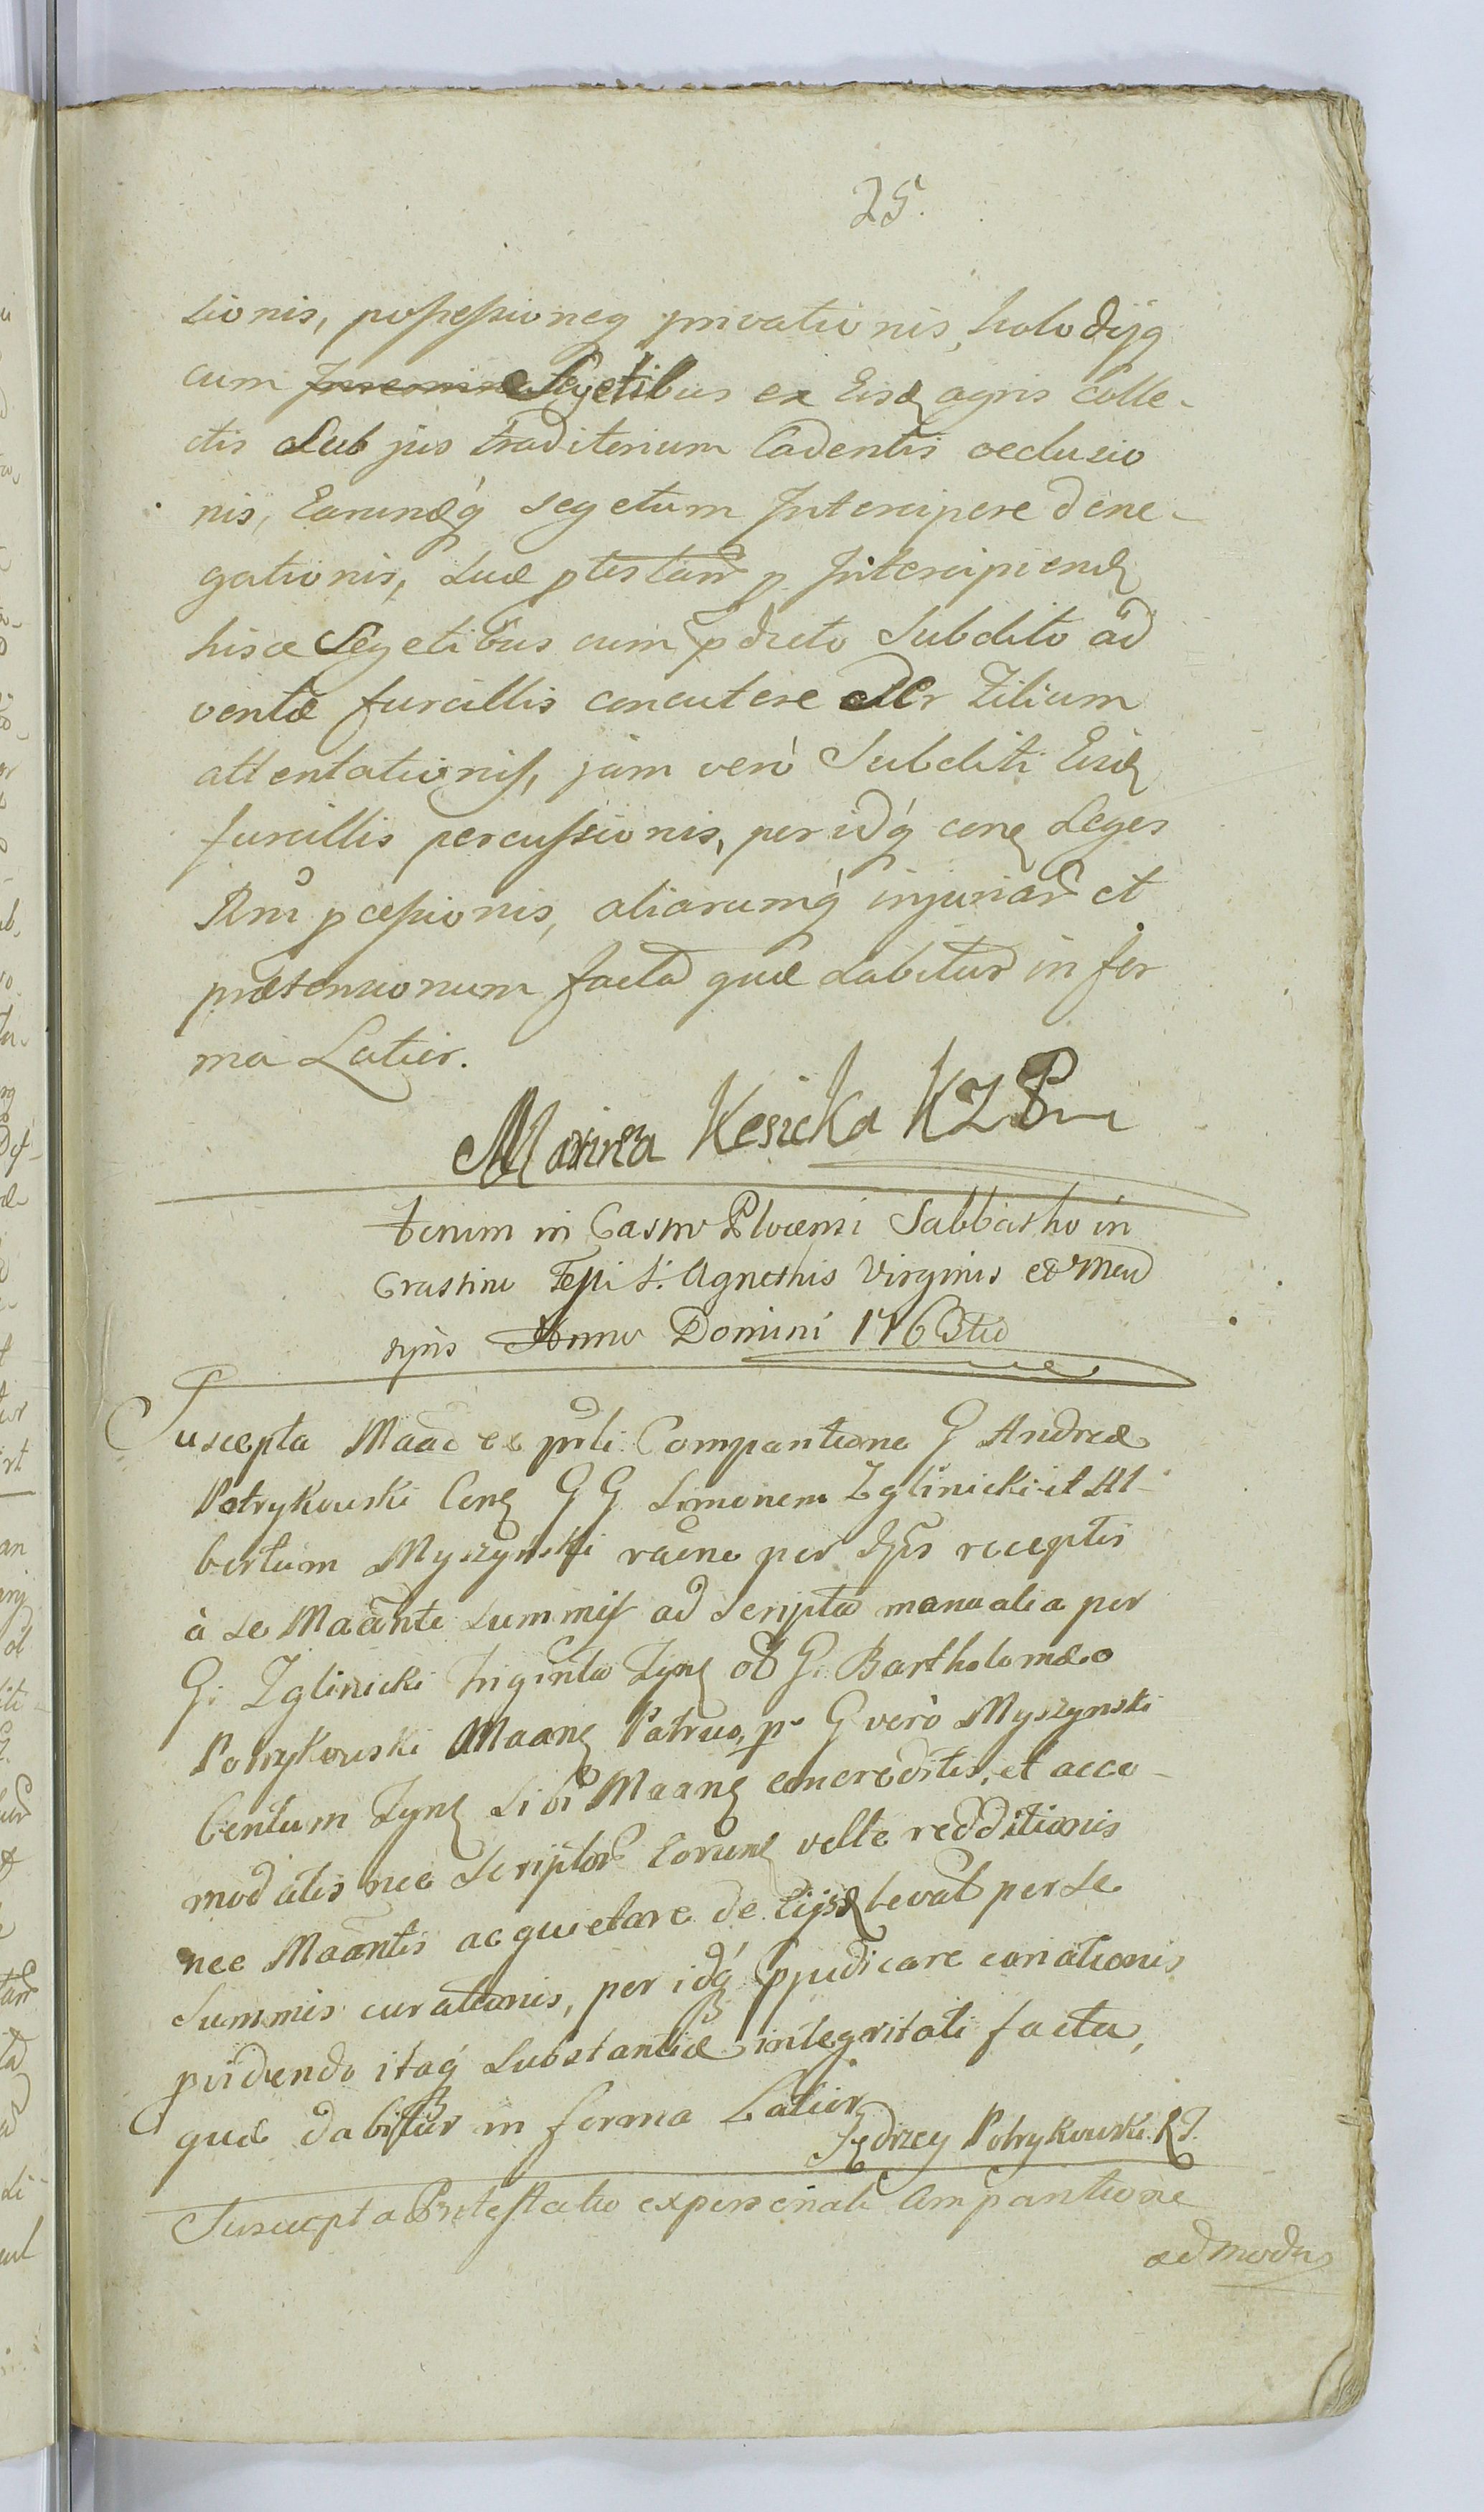 25.
sionis, possessioneq privationis, holodijq
cum Segetibus ex Eisd agris Colle-
ctis Sub jus traditorium Cadentis occlusio
nis, Earundq segetum Intercipere dene-
gationis, suae ptestan p Intercipiend
hisce Segetibus cum pdicto Subdito ad
ventae furcillis concutere Per Filium
attentationis, jam vero Subditi Eisd
furcillis percussionis, per idq con Leges
Rni pcessionis, aliarumq injuriar et
praetensionum facta quae dabitur in for
ma Latior.
Marina Kesicka KZP
Actum in Castro Plocensi Sabbatho in
Crastino Festi S. Agnethis Virginis et Mar
tyris Anno Domini 1763tio
Suscepta Maao ex pnli Compantione G Andreae
Potrykowski Con G G Simonem Zglinicki et Al-
bertum Myszynski raone per Ipss receptis
à se Maante summis ad scripta manualia per
G. Zglinicki Triginta Tyn ob G. Bartholomaeo
Potrykowski Maan Patruo, p G verò Myszynski
Centum Tyn Sibi Maan concreditis, et acco-
modatis nec scriptor Eorund velle redditionis
nec Maantis acquietare de Eijsd levat per se
Summis curationis, per idq pjudicare conationis
pvidendo itaq substantiae integritati facta,
quae dabitur in forma Latior
Jędrzey Potrykowski R J.
Suscepta Protestatio ex personali Compantione
admodu